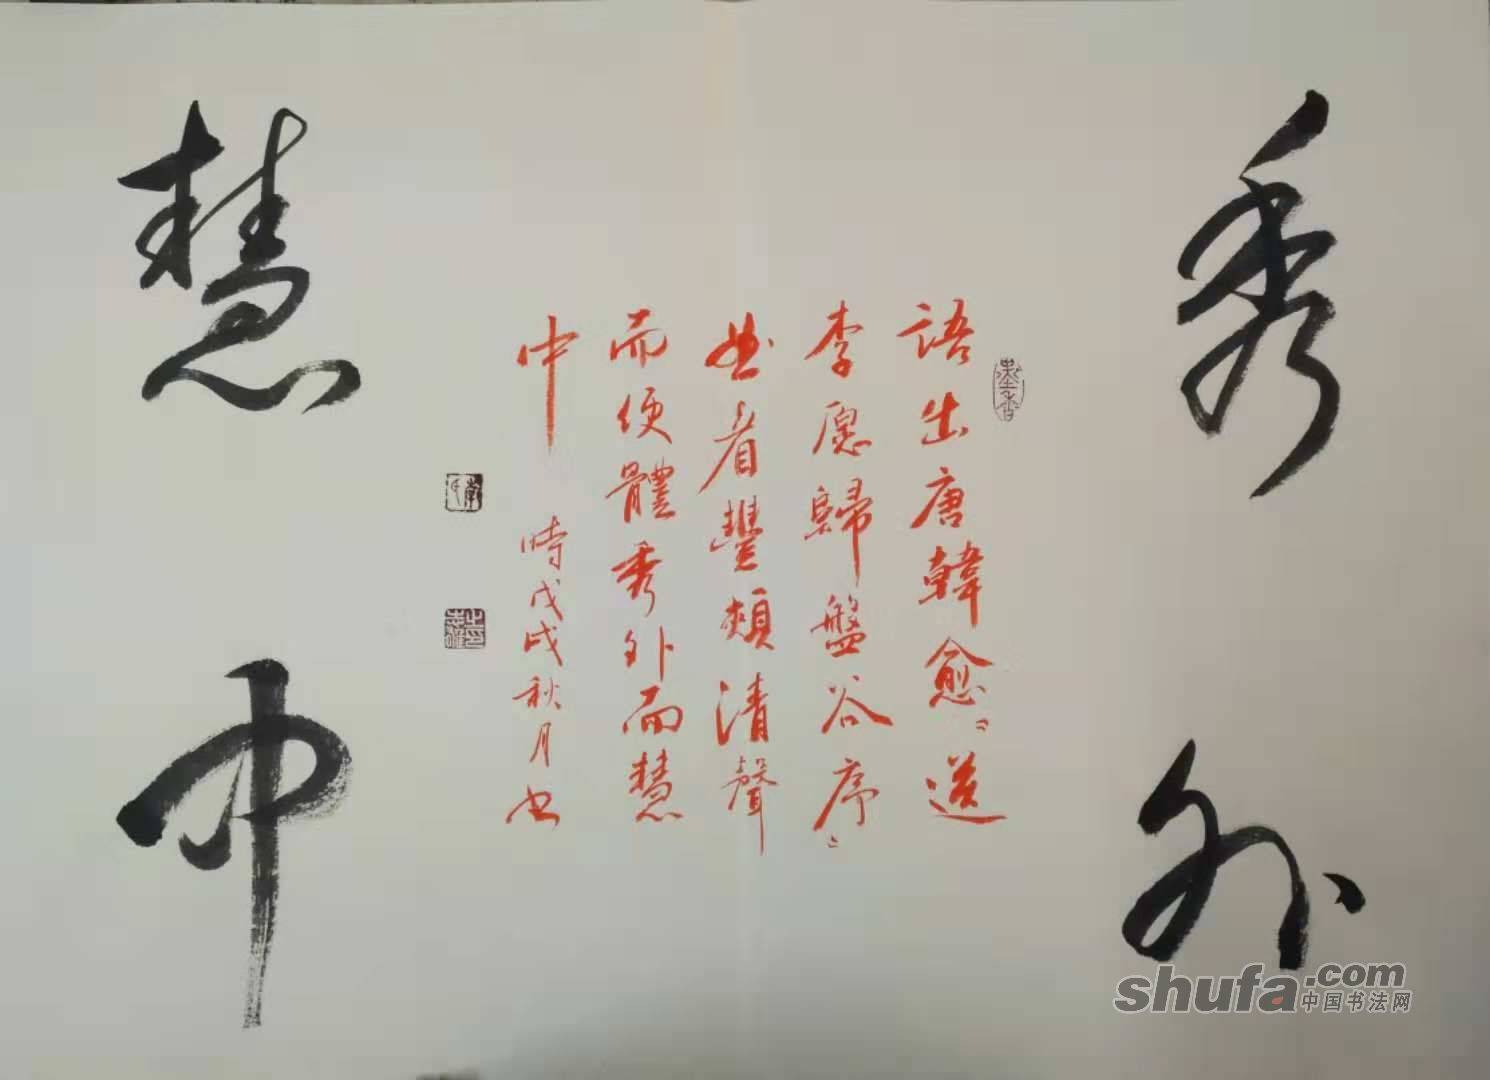 秀外
語出唐韓愈〝送
李愿歸盤谷序〞
曲眉豐頰清聲
而便體秀外而慧
中 時戊戌秋月书
慧中
墨香
shufa.com
中国书法网